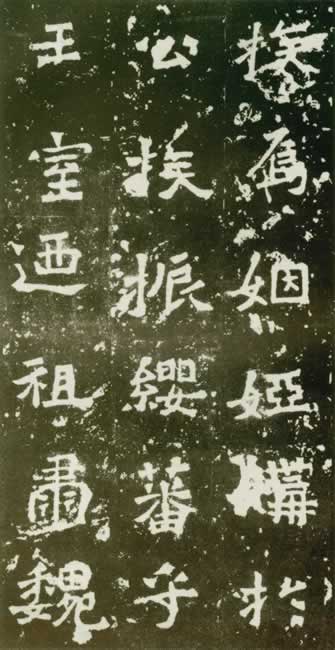 族焉姻婭媾於
公族振纓蕃乎
王室迺祖肅魏